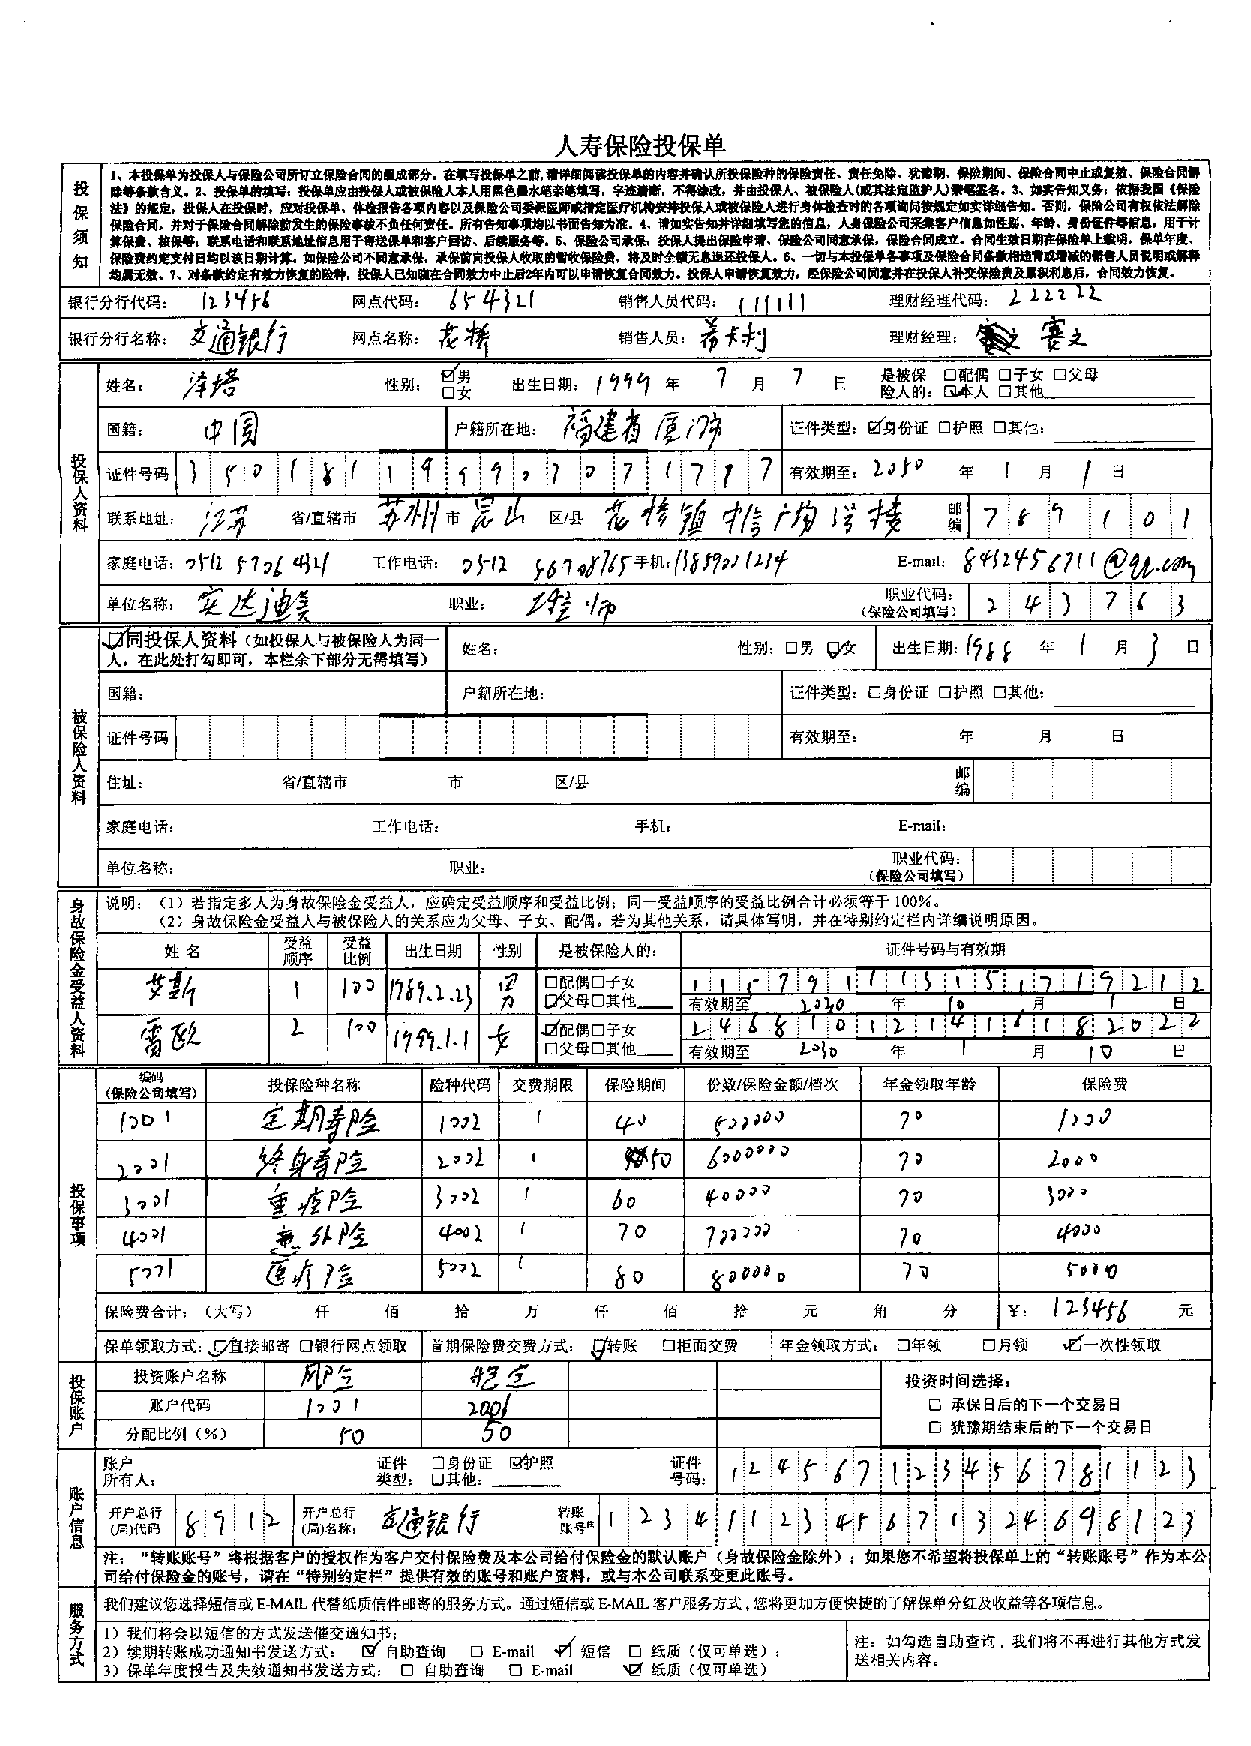 人寿保险投保单
投保须知
1、本投保单为投保人与保险公司所订立保险合同的组成部分。在填写投保单之前,请详细阅读投保单的内容并确认所投保险种的保险责任、责任免除、犹豫期、保险期间、保险合同解
除等条款含义。2、投保单的填写:投保单应由投保人或被保险人本人用黑色墨水笔亲笔填写,字迹清晰,不得涂改,并由投保人、被保险人(或其法定监护人)亲笔签名。3、如实告知义务:依据我国《保险
法》的规定,投保人在投保时,应对投保单、体检报告各项内容以及保险公司委派医师或指定医疗机构安排投保人或被保险人进行身体检查时的各项询问按规定如实详细告知。否则,保险公司有权依法解除
保险合同,并对于保险合同解除前发生的保险事故不负任何责任。所有告知事项均以书面告知为准。4、请如实告知并详细填写您的信息,人身保险公司采集客户信息如性别、年龄、身份证件等信息,用于计
算保费、核保等;联系电话和联系地址信息用于寄送保单和客户回访、后续服务等。5、保险公司承保:投保人提出保险申请、保险公司同意承保,保险合同成立。合同生效日期在保险单上载明,保单年度、
保险费约定支付日均以该日期计算。如保险公司不同意承保,承保前向投保人收取的暂收保险费,将及时全额无息退还投保人。6、一切与本投保单各事项及保险合同条款相违背或增减的销售人员说明或解释
均属无效。7、对条款约定有效力恢复的险种,投保人已知晓在合同效力中止后2年内可以申请恢复合同效力。投保人申请恢复效力,经保险公司同意并在投保人补交保险费及累积利息后,合同效力恢复。
银行分行代码: 123456 网点代码: 654321 销售人员代码: 111111 理财经理代码: 222222
银行分行名称: 交通银行 网点名称: 花桥 销售人员: 希卡利 理财经理: 赛文
投保人资料
姓名: 泽塔 性别: ☑男 □女 出生日期: 1999 年 7 月 7 日 是被保险人的: □配偶 □子女 □父母 ☑本人 □其他
国籍: 中国 户籍所在地: 福建省厦门市 证件类型: ☑身份证 □护照 □其他:
证件号码 350181199907071797 有效期至: 2050 年 1 月 1 日
联系地址: 江苏 省/直辖市 苏州 市 昆山 区/县 花桥镇中信广场 邮编 789101
家庭电话: 0512 5706 4321 工作电话: 0512 56708765 手机: 13859021234 E-mail: 8432456711@qq.com
单位名称: 安达迪美 职业: 工程师 职业代码: (保险公司填写) 243763
被保险人资料
☑同投保人资料(如投保人与被保险人为同一人,在此处打勾即可,本栏余下部分无需填写) 姓名: 性别: □男 ☑女 出生日期: 1988 年 1 月 3 日
国籍: 户籍所在地: 证件类型: □身份证 □护照 □其他:
证件号码 有效期至: 年 月 日
住址: 省/直辖市 市 区/县 邮编
家庭电话: 工作电话: 手机: E-mail:
单位名称: 职业: 职业代码: (保险公司填写)
身故保险金受益人资料
说明:(1)若指定多人为身故保险金受益人,应确定受益顺序和受益比例;同一受益顺序的受益比例合计必须等于100%。
(2)身故保险金受益人与被保险人的关系应为父母、子女、配偶。若为其他关系,请具体写明,并在特别约定栏内详细说明原因。
姓 名 受益顺序 受益比例 出生日期 性别 是被保险人的: 证件号码与有效期
艾斯 1 100 1989.2.23 男 □配偶□子女 ☑父母□其他 115791113151719212
有效期至 2030 年 10 月 1 日
雷欧 2 100 1999.1.1 女 ☑配偶□子女 □父母□其他 246810121416182022
有效期至 2030 年 1 月 10 日
投保事项
编码(保险公司填写) 投保险种名称 险种代码 交费期限 保险期间 份数/保险金额/档次 年金领取年龄 保险费
1001 定期寿险 1002 1 40 500000 70 1000
2001 终身寿险 2002 1 50 6000000 70 2000
3001 重疾险 3002 1 60 40000 70 3000
4001 意外险 4002 1 70 700000 70 4000
5001 医疗险 5002 1 80 800000 70 5000
保险费合计:(大写) 仟 佰 拾 万 仟 佰 拾 元 角 分 ¥: 123456 元
保单领取方式: ☑直接邮寄 □银行网点领取 首期保险费交费方式: ☑转账 □柜面交费 年金领取方式: □年领 □月领 ☑一次性领取
投保账户
投资账户名称 风险 稳定 投资时间选择:
账户代码 1001 2001 □ 承保日后的下一个交易日
分配比例(%) 50 50 □ 犹豫期结束后的下一个交易日
账户信息
账户所有人: 证件类型: □身份证 ☑护照 □其他: 证件号码: 124567123456781123
开户总行(局)代码 8912 开户总行(局)名称: 交通银行 转账账号 123411234567132469 8123
注:“转账账号”将根据客户的授权作为客户交付保险费及本公司给付保险金的默认账户(身故保险金除外);如果您不希望将投保单上的“转账账号”作为本公
司给付保险金的账号,请在“特别约定栏”提供有效的账号和账户资料,或与本公司联系变更此账号。
服务方式
我们建议您选择短信或E-MAIL代替纸质信件邮寄的服务方式。通过短信或E-MAIL客户服务方式,您将更加方便快捷的了解保单分红及收益等各项信息。
1)我们将会以短信的方式发送催交通知书;
2)续期转账成功通知书发送方式: ☑ 自助查询 □ E-mail ☑ 短信 □ 纸质(仅可单选);
3)保单年度报告及失效通知书发送方式: □ 自助查询 □ E-mail ☑ 纸质(仅可单选)
注:如勾选自助查询,我们将不再进行其他方式发
送相关内容。